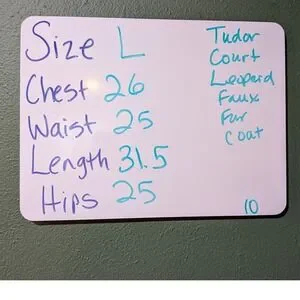 Size L
Chest 26
Waist 25
Length 31.5
Hips 25
Tudor
Court
Leopard
Faux
Fur
Coat
10